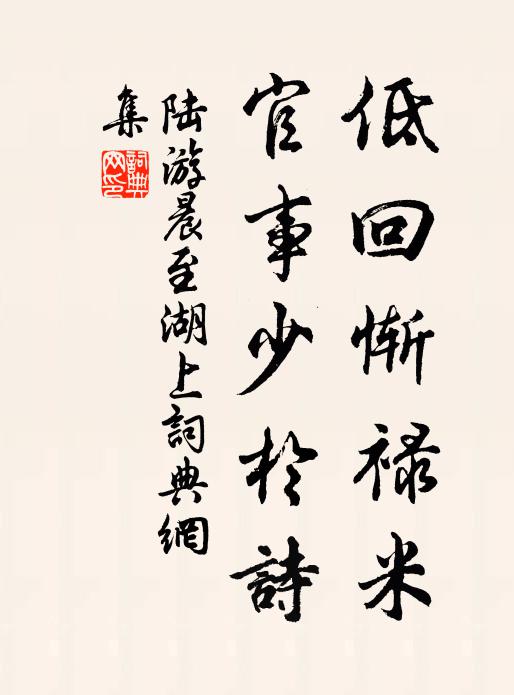 低回惭禄米
官事少於詩
陆游晨至湖上詞典網
集
詞典网印